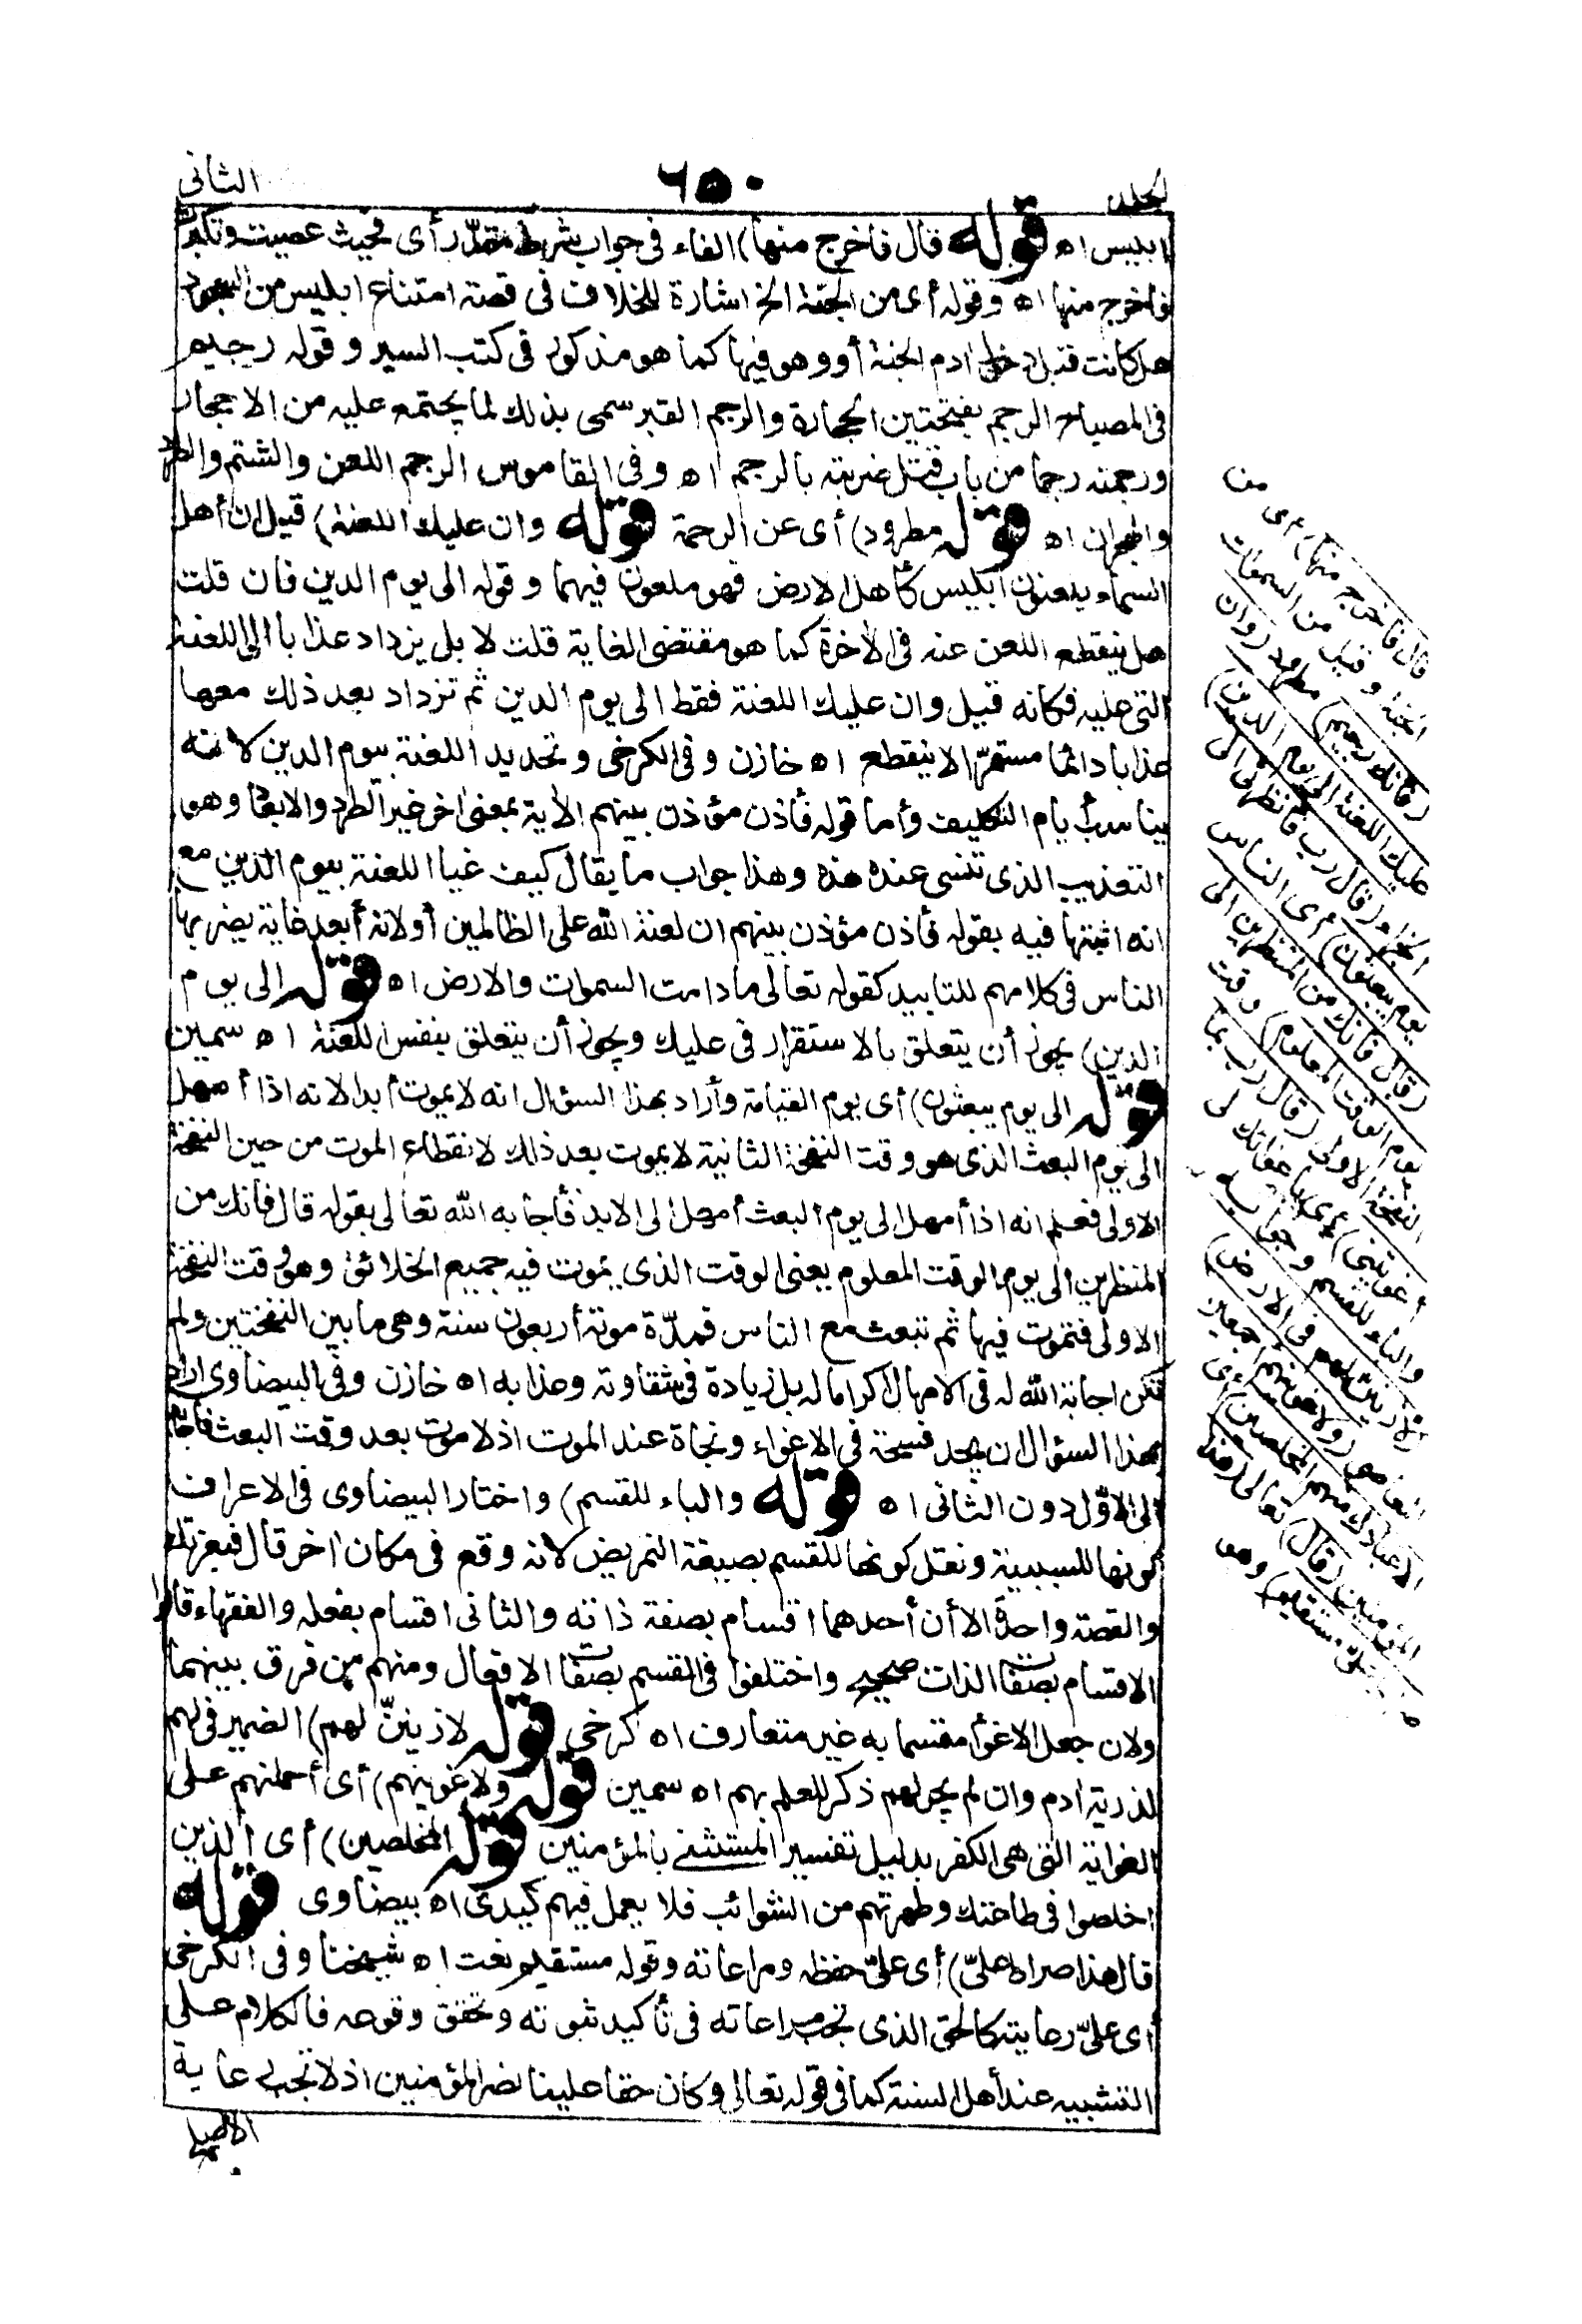 المجلد
٦٥٠
الثانى
ابليس اه قوله قال فاخرج منها) الفاء فى جواب شرط مقدّر أى فحيث عصيت وتكبرت
فاخرج منها اه وقوله أى من الجنة الخ اشارة للخلاف فى قصة امتناع ابليس من السجود
هل كانت قبل دخول ادم الجنة أو وهو فيها كما هو مذكور فى كتب السير وقوله رجيم
فى المصباح الرجم بفتحتين الحجارة والرجم القبر سمى بذلك لما يجتمع عليه من الاحجار
ورجمته رجما من باب قتل ضربته بالرجم اه وفى القاموس الرجم اللعن والشتم والطرد
والهجران اه قوله مطرود) أى عن الرحمة قوله وان عليك اللعنة) قيل ان أهل
السماء يلعنون ابليس كأهل الارض فهو ملعون فيهما وقوله الى يوم الدين فان قلت
هل ينقطع اللعن عنه فى الاخرة كما هو مقتضى الغاية قلت لا بل يزداد عذابا الى اللعنة
التى عليه فكانه قيل وان عليك اللعنة فقط الى يوم الدين ثم تزداد بعد ذلك معها
عذابا دائما مستمرّا لا ينقطع اه خازن وفى الكرخى وتحديد اللعنة بيوم الدين لانه
يناسب أيام التكليف وأما قوله فأذن مؤذن بينهم الاية بمعنى اخر غير الطرد والابعاد وهو
التعذيب الذى تنسى عنده هذه وهذا جواب ما يقال كيف غيا اللعنة بيوم الدين مع
انه اثبتها فيه بقوله فأذن مؤذن بينهم ان لعنة الله على الظالمين أو لانه أبعد غاية يضربها
الناس فى كلامهم للتابيد كقوله تعالى مادامت السموات والارض اه قوله الى يوم
الدين) يجوز أن يتعلق بالاستقرار فى عليك ويجوز أن يتعلق بنفس اللعنة اه سمين
قوله الى يوم يبعثون) أى يوم القيامة وأراد بهذا السؤال انه لا يموت أبدا لانه اذا أمهل
الى يوم البعث الذى هو وقت النفخة الثانية لا يموت بعد ذلك لانقطاع الموت من حين النفخة
الاولى فعلم انه اذا أمهل الى يوم البعث أمهل الى الابد فأجابه الله تعالى بقوله قال فانك من
المنظرين الى يوم الوقت المعلوم يعنى الوقت الذى يموت فيه جميع الخلائق وهو وقت النفخة
الاولى فتموت فيها ثم تبعث مع الناس فمدّة موته أربعون سنة وهى ما بين النفختين ولم
تكن اجابة الله له فى الامهال اكراما له بل زيادة فى شقاوته وعذابه اه خازن وفى البيضاوى اراد
بهذا السؤال ان يجد فسحة فى الاغواء ونجاة عند الموت اذ لا موت بعد وقت البعث فأجابه
الى الاوّل دون الثانى اه قوله والباء للقسم) واختار البيضاوى فى الاعراف
كونها للسببية ونقل كونها للقسم بصيغة التمريض لانه وقع فى مكان اخر قال فبعزتك
والقصة واحدة الا أن أحدهما اقسام بصفة ذاته والثانى اقسام بفعله والفقهاء قالوا
الاقسام بصفات الذات صحيح واختلفوا فى القسم بصفات الافعال ومنهم من فرق بينهما
ولان جعل الاغواء مقسما به غير متعارف اه كرخى قوله لازيننّ لهم) الضمير فى لهم
لذرية ادم وان لم يجر لهم ذكر للعلم بهم اه سمين قوله ولاغوينهم) أى أحملنهم على
الغواية التى هى الكفر بدليل تفسير المستثنى بالمؤمنين قوله المخلصين) أى الذين
اخلصوا فى طاعتك وطهرتهم من الشوائب فلا يعمل فيهم كيدى اه بيضاوى قوله
قال هذا صراط علىّ) أى علىّ حفظه ومراعاته وقوله مستقيم نعت اه شيخنا وفى الكرخى
أى علىّ رعايته كالحق الذى تجب مراعاته فى تأكيد ثبوته وتحقق وقوعه فالكلام على
التشبيه عند أهل السنة كما فى قوله تعالى وكان حقا علينا نصر المؤمنين اذ لا تجب رعاية
الاصلح
قال فاخرج منها) أى من
الجنة وقيل من السموات
(فانك رجيم) مطرود (وان
عليك اللعنة الى يوم الدين)
الجزاء (قال رب فأنظرنى الى
يوم يبعثون) أى الناس
(قال فانك من المنظرين الى
يوم الوقت المعلوم) وقت
النفخة الاولى (قال رب بما
أغويتنى) أى باغوائك لى
والباء للقسم وجوابه
(لازينن لهم فى الارض)
المعاصى (ولاغوينهم أجمعين
الا عبادك منهم المخلصين) أى
المؤمنين (قال) تعالى (هذا
صراط علىّ مستقيم) وهو